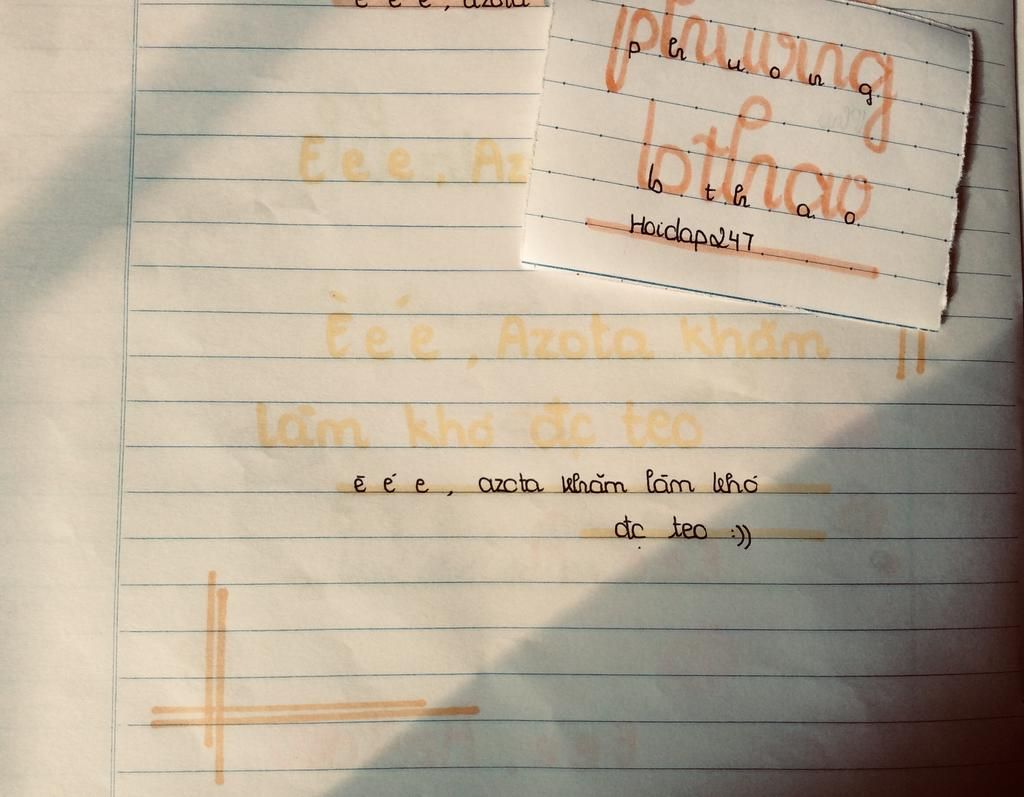 e e e, azota
phuong
p h u o n g
bthao
b t h a o
Hoidap247
E e e, Az
È e é, Azota khăm
lăm khó đc teo
ē é e, azota khăm lăm khó
đc teo :))